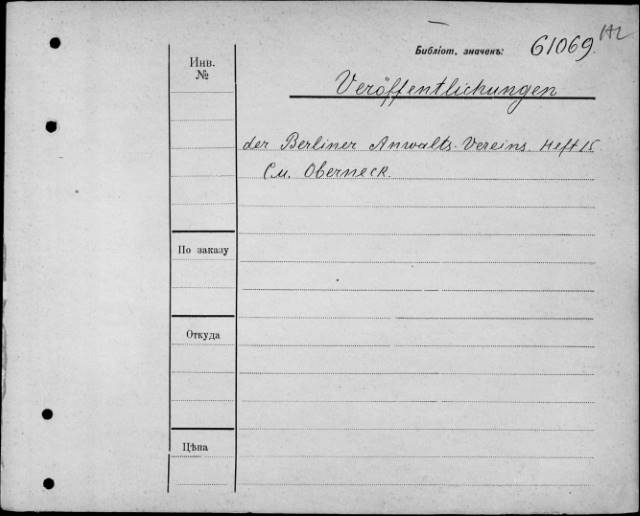 Библіот. значекъ: 61069.
Инв.
№
Veröffentlichungen
der Berliner Anwalts-Vereins. Heft 15
См. Oberneck.
По заказу
Откуда
Цѣна